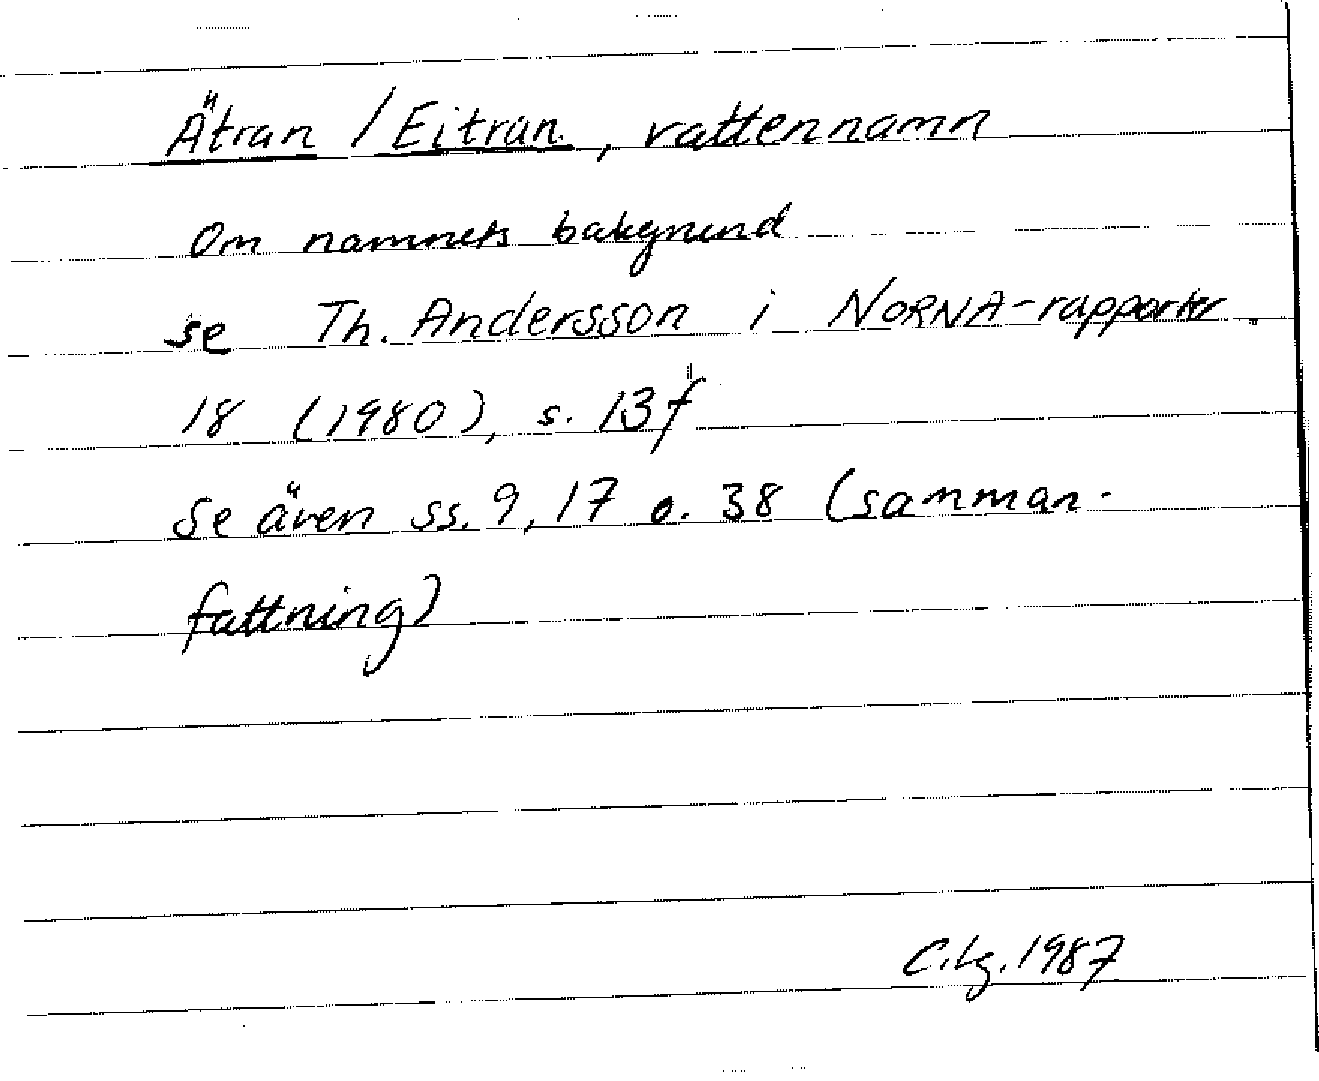 Ätran / Eitran, vattennamn
Om namnets bakgrund
se Th. Andersson i NORNA-rapporter
18 (1980), s. 13 f
Se även ss. 9, 17 o. 38 (samman-
fattning)
C.Lg. 1987